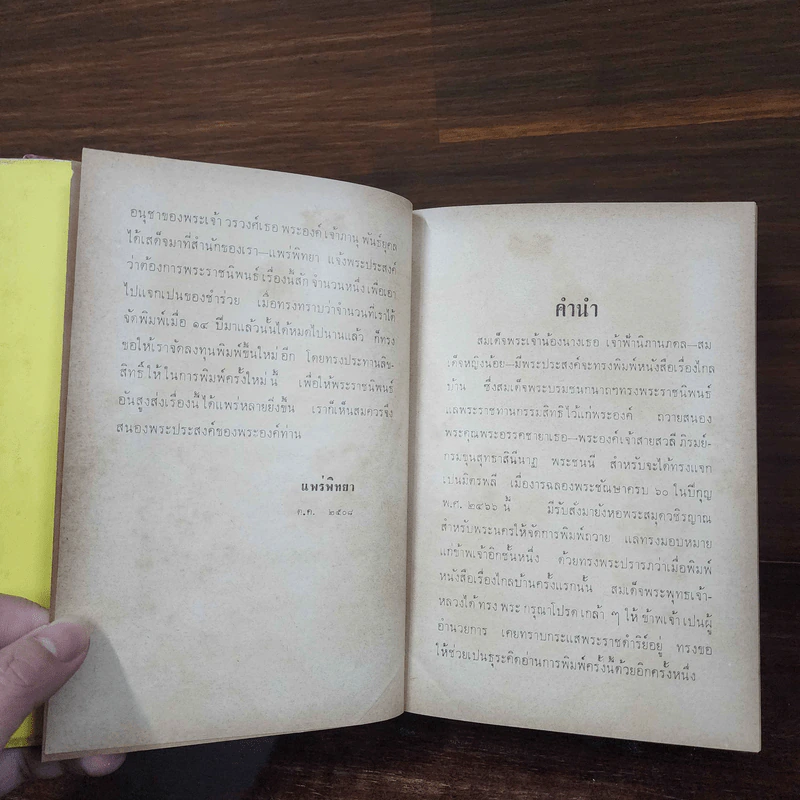 อนุชาของพระเจ้า วรวงศ์เธอ พระองค์ เจ้าภาณุ พันธ์ยุคล
ได้เสด็จมาที่สำนักของเรา—แพร่พิทยา แจ้งพระประสงค์
ว่าต้องการพระราชนิพนธ์ เรื่องนี้สัก จำนวนหนึ่ง เพื่อเอา
ไปแจกเปนของชำร่วย เมื่อทรงทราบว่าจำนวนที่เราได้
จัดพิมพ์เมื่อ ๑๔ ปีมาแล้วนั้นได้หมดไปนานแล้ว ก็ทรง
ขอให้เราจัดลงทุนพิมพ์ขึ้นใหม่ อีก โดยทรงประทานลิข-
สิทธิ์ ให้ ในการพิมพ์ครั้งใหม่ นี้ เพื่อให้พระราชนิพนธ์
อันสูงส่งเรื่องนี้ ได้แพร่หลายยิ่งขึ้น เราก็เห็นสมควรจึง
สนองพระประสงค์ของพระองค์ท่าน
แพร่พิทยา
ต.ค. ๒๕๐๘
คำนำ
สมเด็จพระเจ้าน้องนางเธอ เจ้าฟ้านิภานภดล—สม
เด็จหญิงน้อย—มีพระประสงค์จะทรงพิมพ์หนังสือเรื่องไกล
บ้าน ซึ่งสมเด็จพระบรมชนกนาถฯทรงพระราชนิพนธ์
แลพระราชทานกรรมสิทธิไว้แก่พระองค์ ถวายสนอง
พระคุณพระอรรคชายาเธอ—พระองค์เจ้าสายสวลี ภิรมย์-
กรมขุนสุทธาสินีนาฏ พระชนนี สำหรับจะได้ทรงแจก
เปนมิตรพลี เมื่องารฉลองพระชัณษาครบ ๖๐ ในปีกุญ
พ.ศ. ๒๔๖๖ นี้ มีรับสั่งมายังหอพระสมุดวชิรญาณ
สำหรับพระนครให้จัดการพิมพ์ถวาย แลทรงมอบหมาย
แก่ข้าพเจ้าอีกชั้นหนึ่ง ด้วยทรงพระปรารภว่าเมื่อพิมพ์
หนังสือเรื่องไกลบ้านครั้งแรกนั้น สมเด็จพระพุทธเจ้า-
หลวงได้ ทรง พระ กรุณาโปรด เกล้า ๆ ให้ ข้าพเจ้า เปนผู้
อำนวยการ เคยทราบกระแสพระราชดำริห์อยู่ ทรงขอ
ให้ช่วยเปนธุระคิดอ่านการพิมพ์ครั้งนี้ด้วยอีกครั้งหนึ่ง